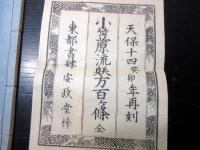 天保十四癸卯年再刻
小笠原流躾方百箇條 全
東都書肆 宏政堂梓